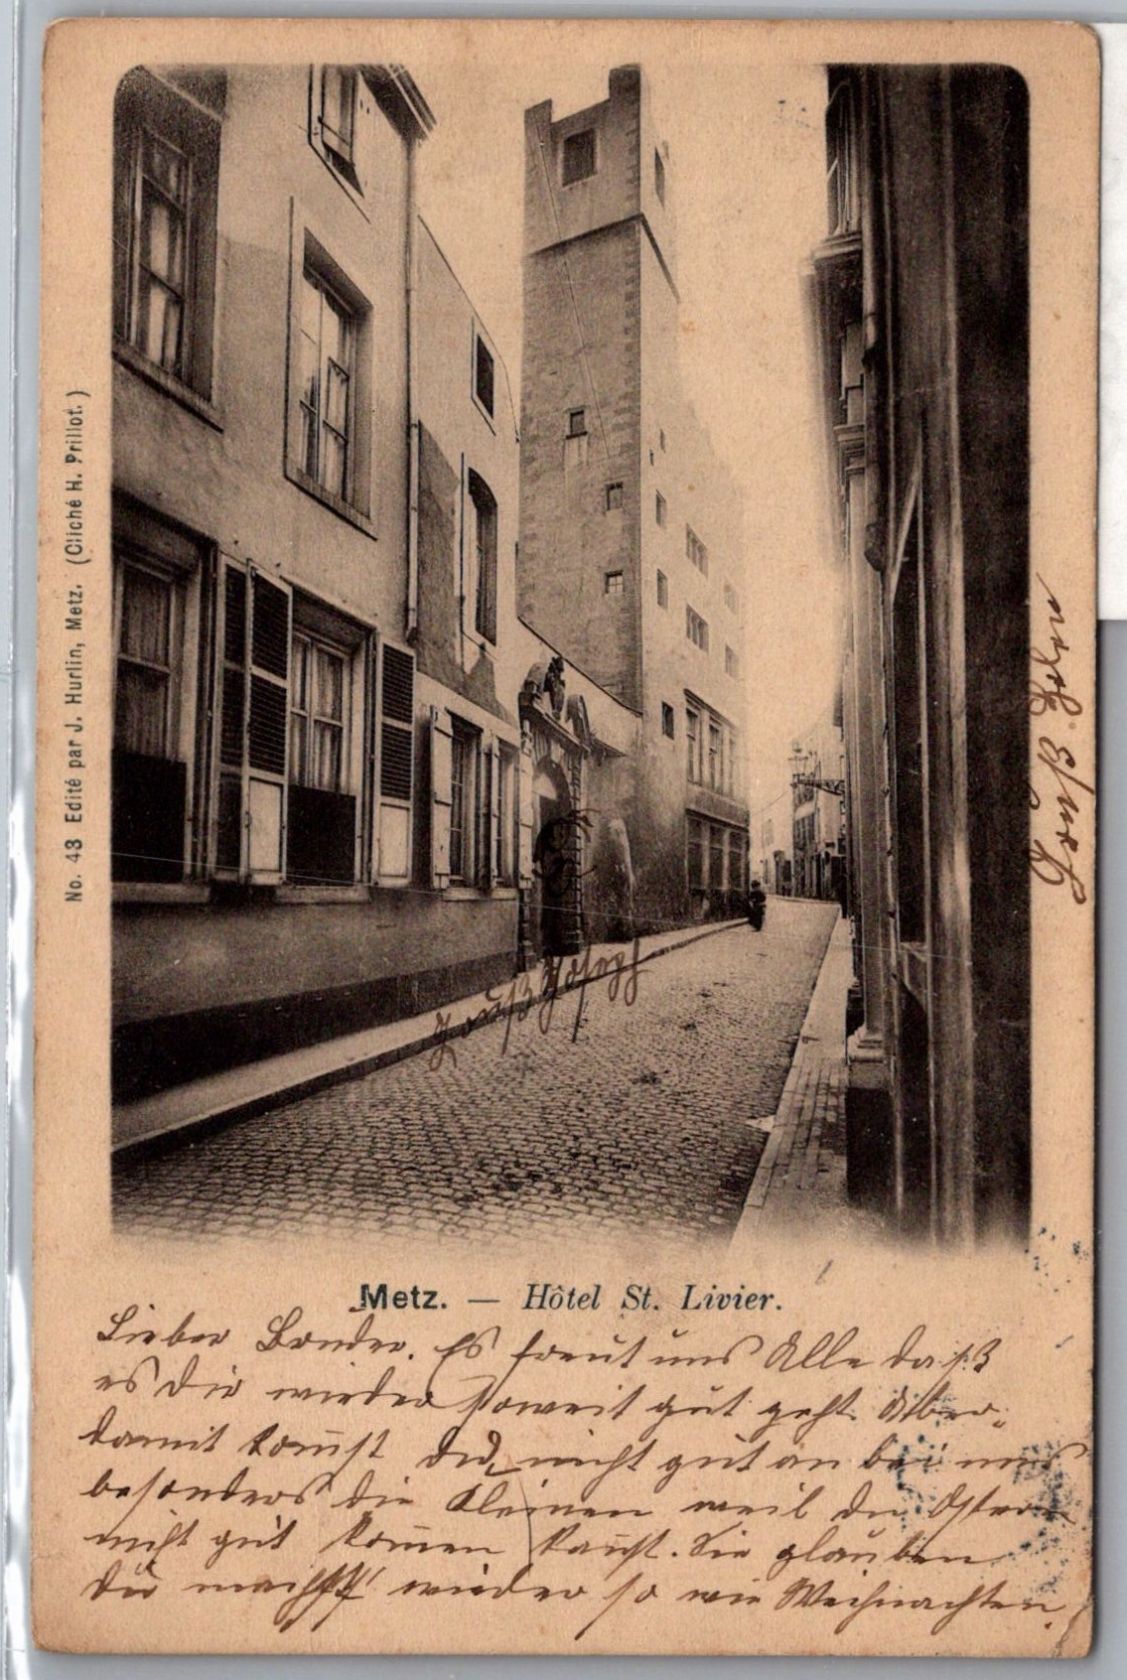 No. 43 Edité par J. Hurlin, Metz. (Cliché H. Prillot.)
Metz. — Hôtel St. Livier.
Lieber Bruder. Es freut uns Alle daß
es dir wieder soweit gut geht. Aber
damit kom̅st du nicht gut an bei uns
besonders die Kleinen weil du Ostern
nicht gut kom̅en kan̅st. Sie glauben
du machst wieder so wie Weihnachten.